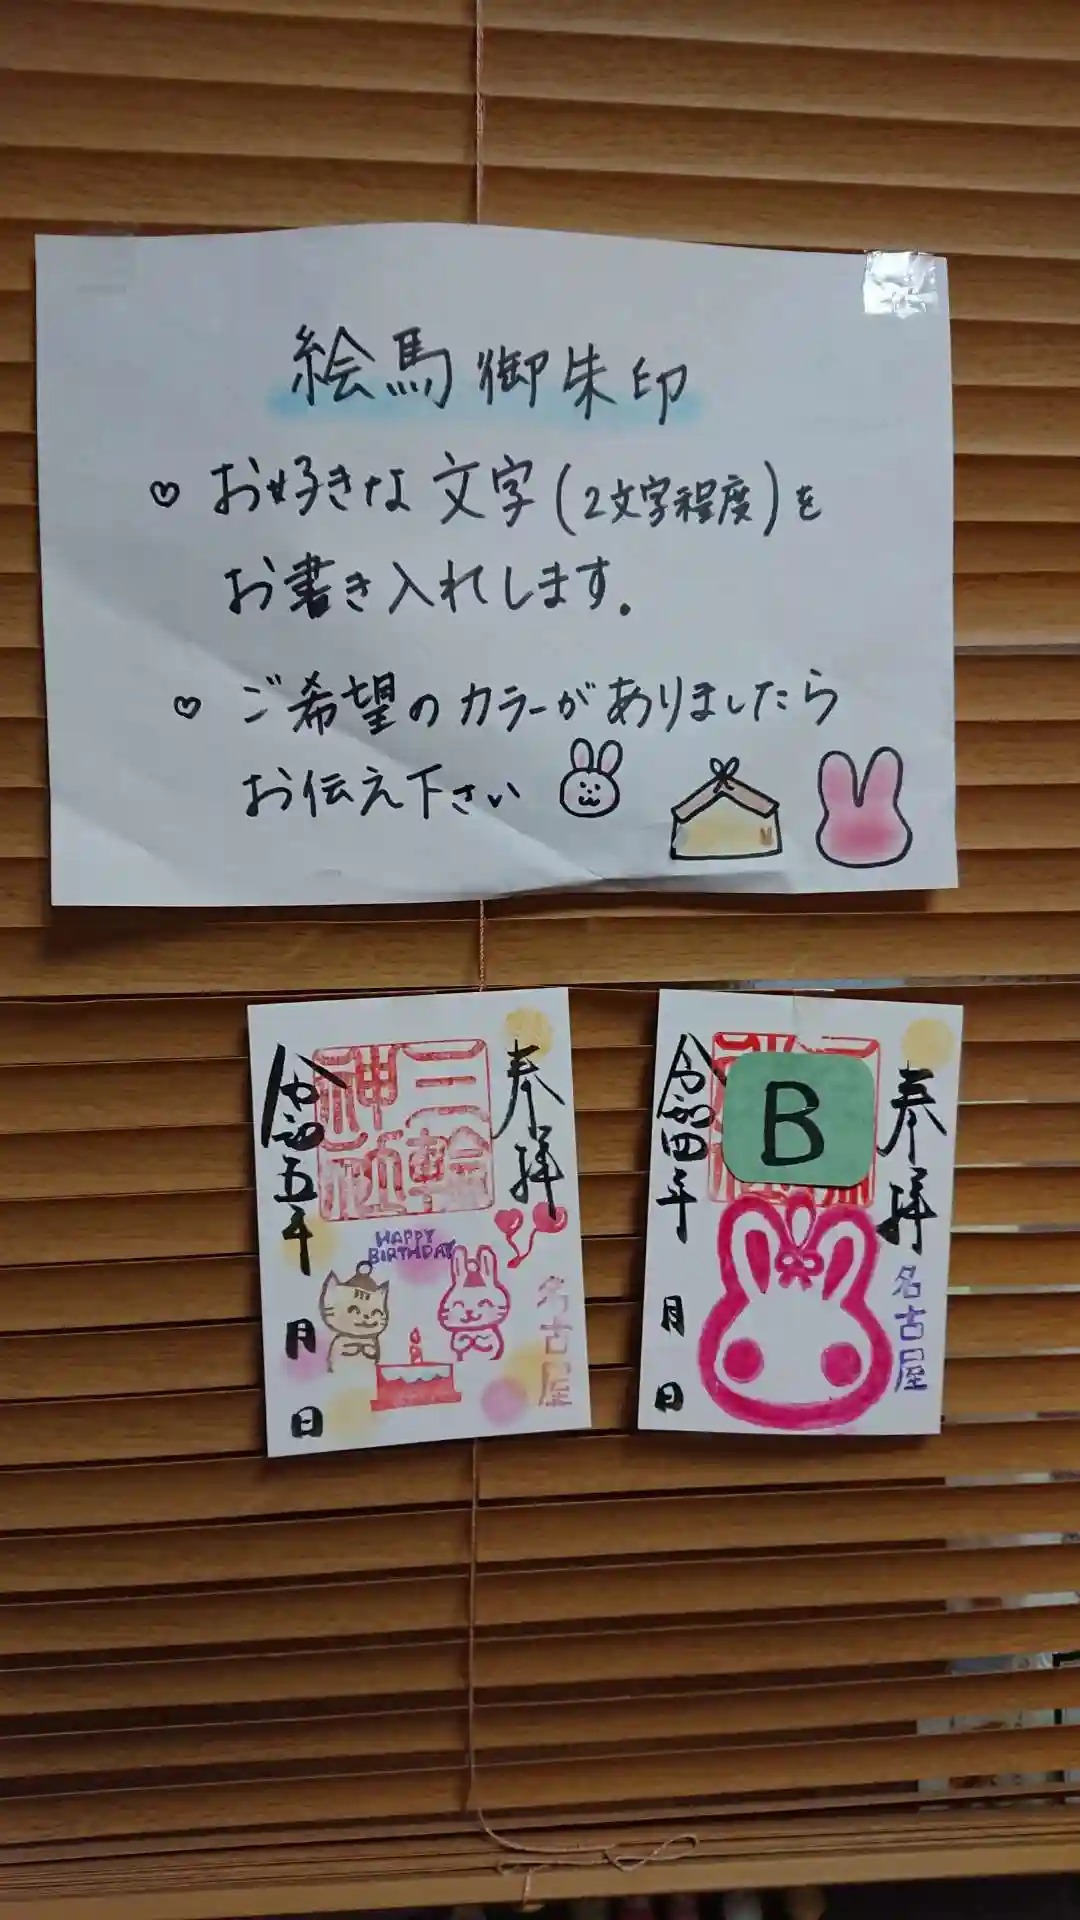 絵馬御朱印
♡ お好きな文字(2文字程度)を
お書き入れします.
♡ ご希望のカラーがありましたら
お伝え下さい
奉拝
三輪神社
令和五年 月 日
HAPPY
BIRTHDAY
名古屋
奉拝
B
令和四年 月 日
名古屋